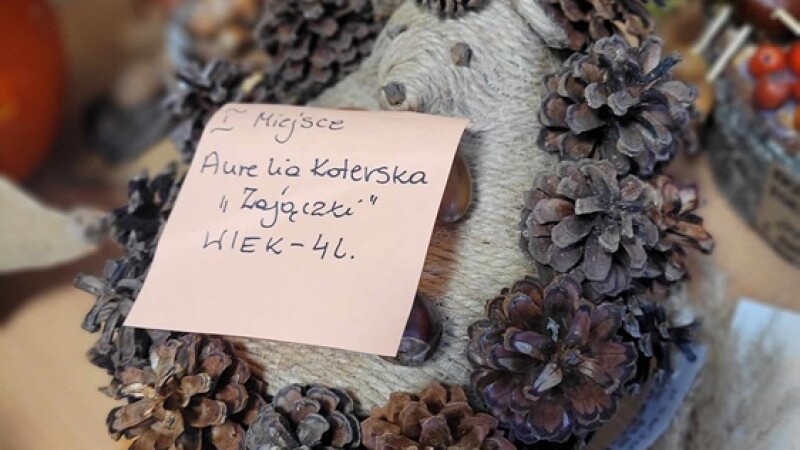 I Miejsce
Aurelia Koterska
"Zajączki"
WIEK-4l.